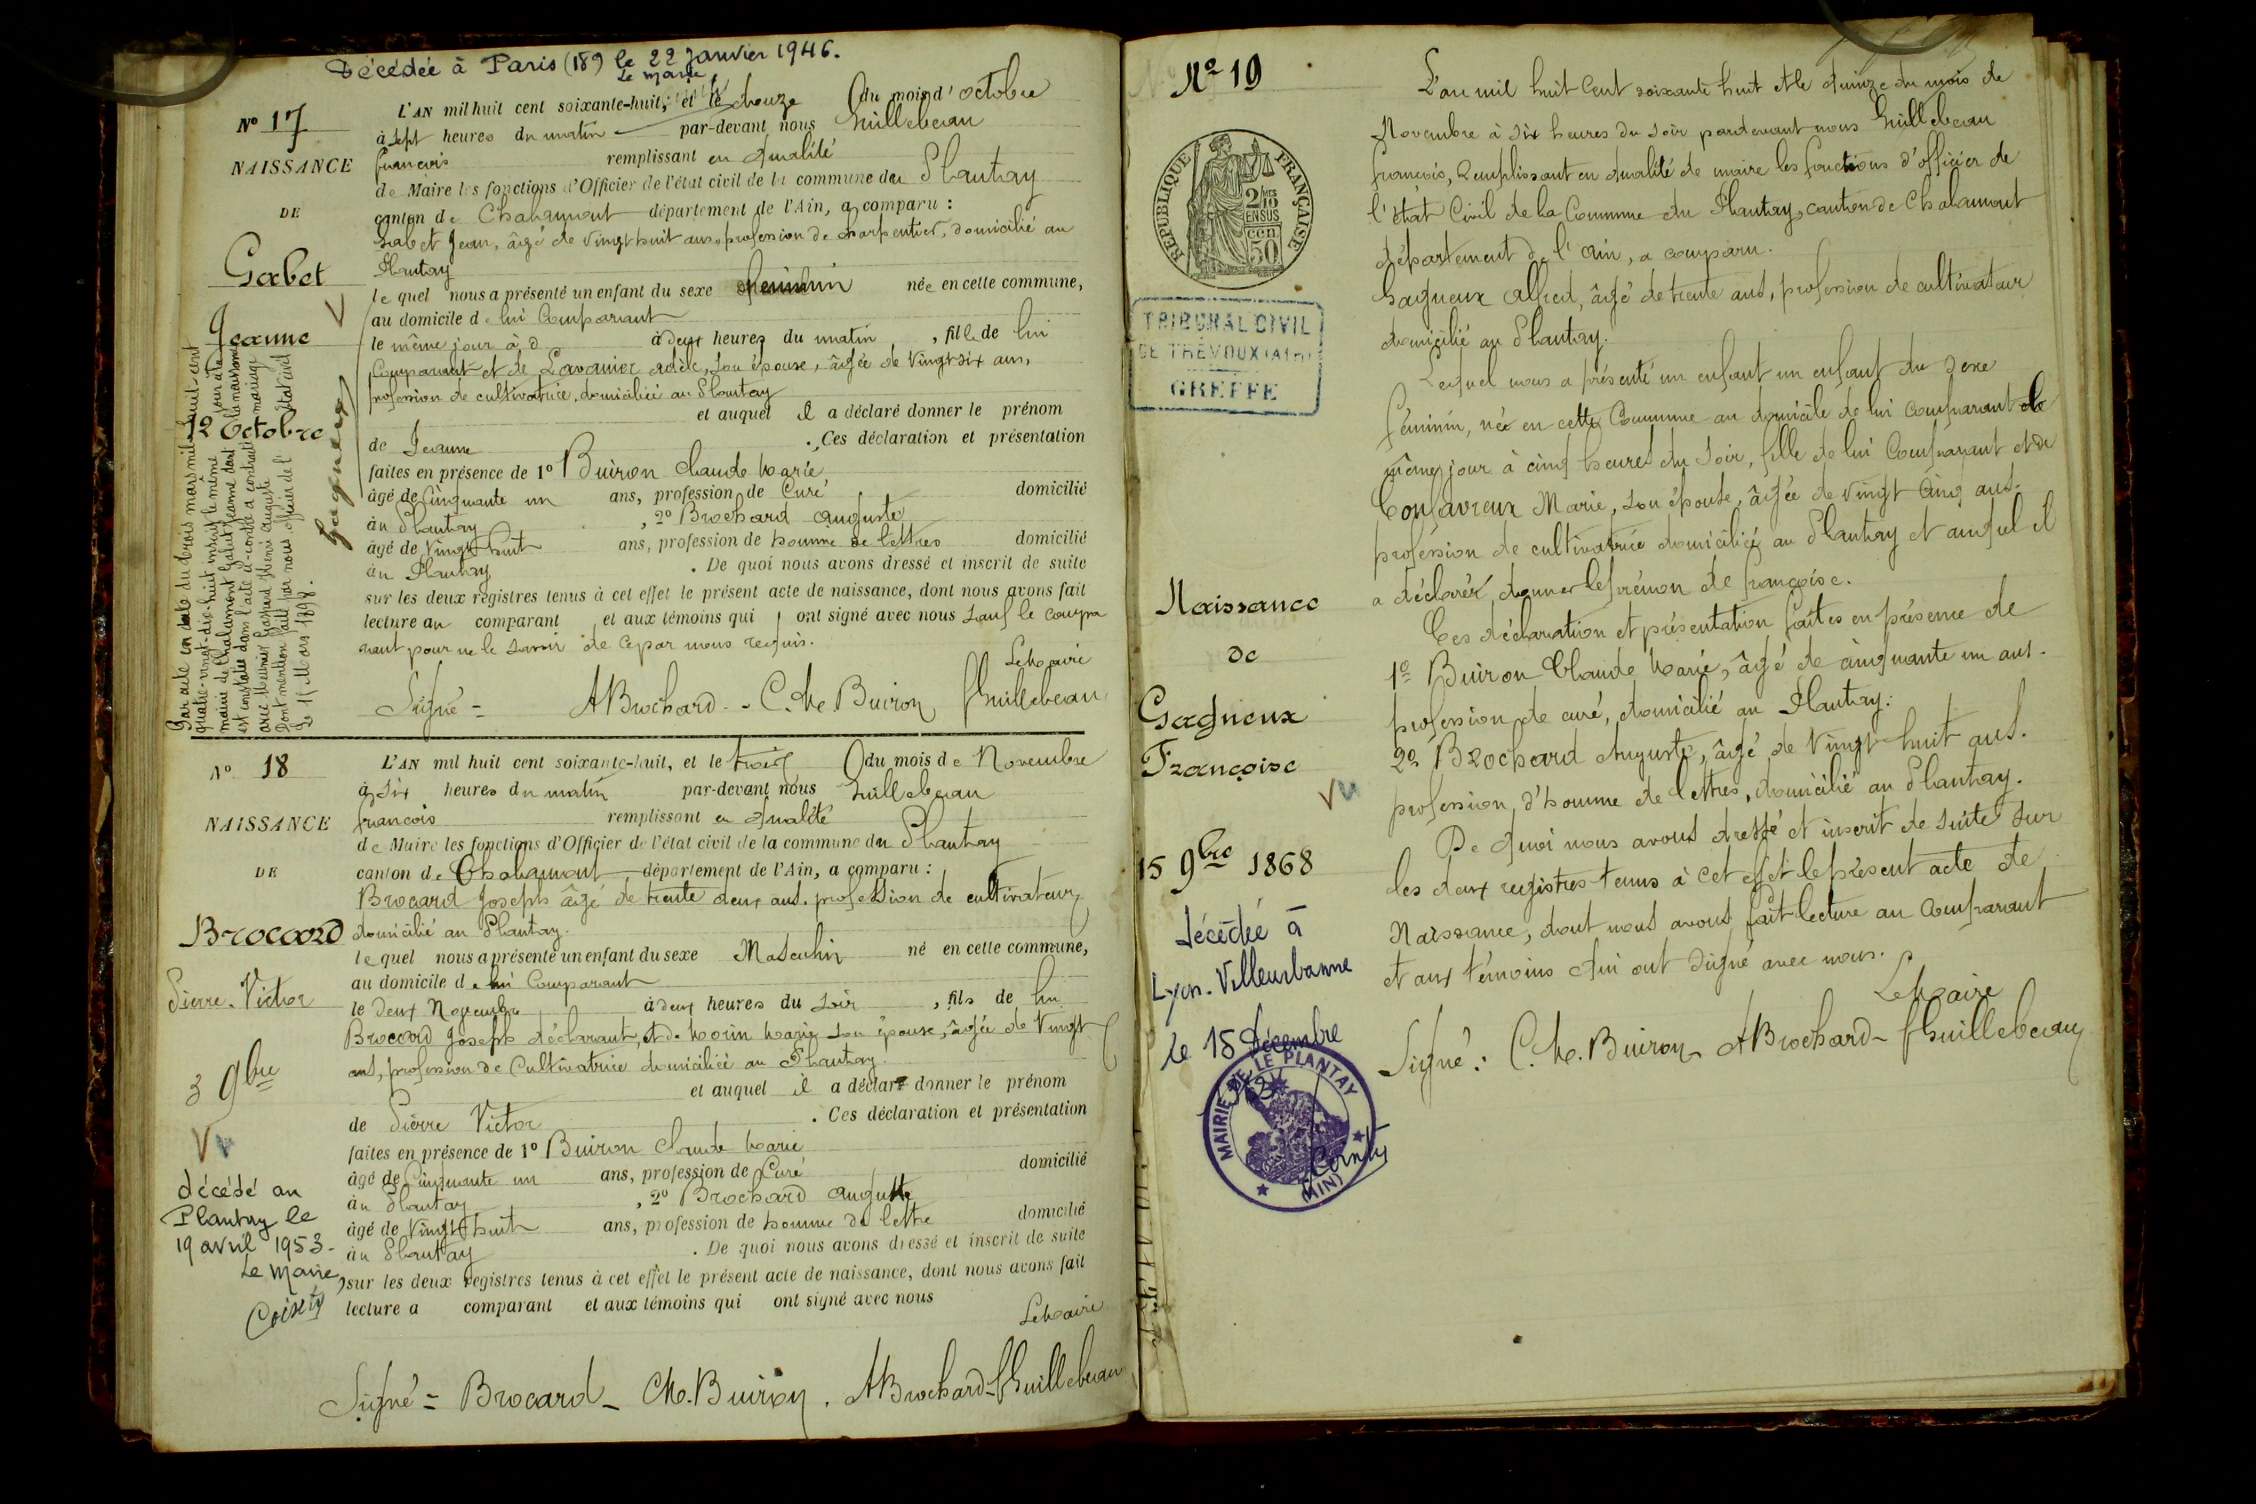 Décédée à Paris (18e) le 22 Janvier 1946.
Le maire
No 17
NAISSANCE
DE
Gabet
Jeanne
12 Octobre
Par acte en date du trois mars mil huit-cent
quatre-vingt-dix-huit inscrit le même jour à la
mairie de Chalamont Gabet Jeanne dont la naissance
est constatée dans l'acte ci-contre a contracté mariage
avec Meunier Gaspard Henri Auguste
Dont mention faite par nous officier de l'Etat civil
Le 11 Mars 1898.
Gagneux
L'AN mil huit cent soixante-huit, et le douze du mois d'octobre
à sept heures du matin par-devant nous Guillebeau
francois remplissant en qualité
de Maire les fonctions d'Officier de l'état civil de la commune du Plantay
canton de Chalamont département de l'Ain, a comparu :
Gabet Jean, âgé de vingt huit ans, profession de charpentier, domicilié au
Plantay
le quel nous a présenté un enfant du sexe féminin née en cette commune,
au domicile de lui Comparant
le même jour à d à deux heures du matin , fille de lui
Comparant et de Lavanier adèle, son épouse, âgée de vingt six ans,
profession de cultivatrice, domiciliée au Plantay
et auquel il a déclaré donner le prénom
de Jeanne . Ces déclaration et présentation
faites en présence de 1o Buiron Claude Marie
âgé de Cinquante un ans, profession de Curé domicilié
au Plantay , 2o Brochard auguste
âgé de vingt huit ans, profession de homme de lettres domicilié
au Plantay . De quoi nous avons dressé et inscrit de suite
sur les deux registres tenus à cet effet le présent acte de naissance, dont nous avons fait
lecture au comparant et aux témoins qui ont signé avec nous sauf le compa
rant pour ne le savoir de ce par nous requis.
Le Maire
Signé = A Brochard - C. M. Buiron fGuillebeau
No 18
NAISSANCE
DE
Brocard
Pierre-Victor
3 9bre
Vu
décédé au
Plantay le
19 avril 1953.
Le Maire,
L'AN mil huit cent soixante-huit, et le trois du mois de Novembre
à six heures du matin par-devant nous Guillebeau
francois remplissant en qualité
de Maire les fonctions d'Officier de l'état civil de la commune du Plantay
canton de Chalamont département de l'Ain, a comparu :
Brocard Joseph âgé de trente deux ans, profession de cultivateur,
domicilié au Plantay.
le quel nous a présenté un enfant du sexe Masculin né en cette commune,
au domicile de lui Comparant
le deux Novembre à deux heures du soir , fils de lui
Brocard Joseph déclarant, et de Morin Marie son épouse, âgée de vingt
ans, profession de Cultivatrice domiciliée au Plantay.
et auquel il a déclaré donner le prénom
de Pierre Victor . Ces déclaration et présentation
faites en présence de 1o Buiron Claude Marie
âgé de Cinquante un ans, profession de Curé domicilié
au Plantay , 2o Brochard auguste
âgé de vingt huit ans, profession de homme de lettre domicilié
au Plantay . De quoi nous avons dressé et inscrit de suite
sur les deux registres tenus à cet effet le présent acte de naissance, dont nous avons fait
lecture a comparant et aux témoins qui ont signé avec nous
Le Maire
Signé = Brocard - C M. Buiron . A Brochard - fGuillebeau
No 19
REPUBLIQUE FRANÇAISE
2/10 EN SUS
50 cen
TRIBUNAL CIVIL
DE TRÉVOUX (AIN)
GREFFE
Naissance
de
Gagneux
Françoise
Vu
15 9bre 1868
décédée à
Lyon-Villeurbanne
le 15 décembre
MAIRIE DE LE PLANTAY
(AIN)
L'an mil huit Cent soixante huit et le quinze du mois de
Novembre à six heures du soir pardevant nous Guillebeau
françois, Remplissant en qualité de maire les fonctions d'officier de
l'état Civil de la Commune du Plantay, canton de Chalamont
département de l'ain, a comparu.
Gagneux Alfred, âgé de trente ans, profession de cultivateur
domicilié au Plantay.
Lequel nous a présenté un enfant un enfant du sexe
féminin, née en cette Commune au domicile de lui Comparant le
même jour à cinq heures du soir, fille de lui Comparant et de
Confavreux Marie, son épouse, âgée de vingt Cinq ans.
profession de cultivatrice domiciliée au Plantay et auquel il
a déclaré donner le prénom de françoise.
Ces déclaration et présentation faites en présence de
1o Buiron Claude Marie, âgé de cinquante un ans.
profession de curé, domicilié au Plantay.
2o Brochard Auguste, âgé de vingt huit ans.
profession d'homme de lettres, domicilié au Plantay.
De quoi nous avons dressé et inscrit de suite sur
les deux registres tenus à cet effet le présent acte de
Naissance, dont nous avons fait lecture au Comparant
et aux témoins qui ont signé avec nous.
Le Maire
Signé : C. M. Buiron - A Brochard - fGuillebeau